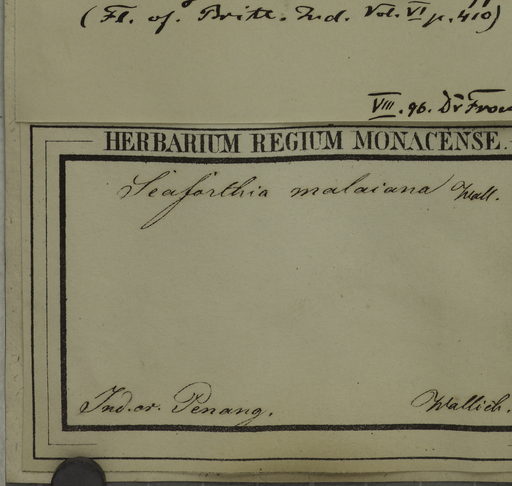 (Fl. of. Britt. Ind. Vol. VI p. 410)
VIII. 96. Dr
HERBARIUM REGIUM MONACENSE.
Seaforthia malaiana Wall.
Ind. or. Penang.
Wallich.